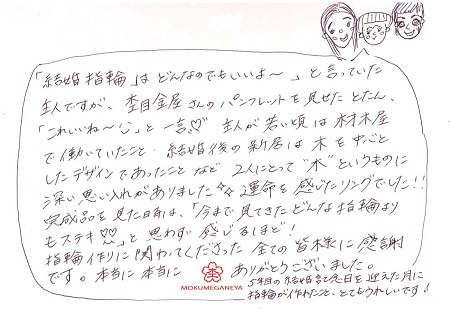 「結婚指輪」はどんなのでもいいよ〜」と言っていた
主人ですが、杢目金屋さんのパンフレットを見せたとたん、
「これいいね〜」と一言♡ 主人が若い頃は材木屋
で働いていたこと、結婚後の新居は木を中心と
したデザインであったことなど 2人にとって"木"というものに
深い思い入れがありました☆☆ 運命を感じたリングでした!!
完成品を見た日は、「今まで見てきたどんな指輪より
もステキ♡♡」と思わず感じるほど!
指輪作りに関わってくださった全ての皆様に感謝
です。本当に本当に ありがとうございました。
MOKUMEGANEYA
5年目の結婚記念日を迎えた月に
指輪が作れたこと、とてもうれしいです!